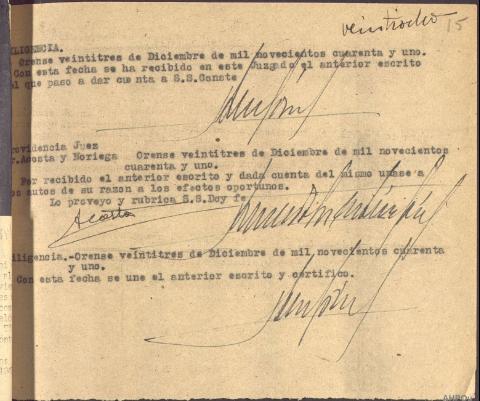 veintiocho 15
ILIGENCIA.
Orense veintitres de Diciembre de mil novecientos cuarenta y uno.
Con esta fecha se ha recibido en este Juzgado el anterior escrito
el que paso a dar cuenta a S.S. Conste
rovidencia Juez
r. Acosta y Noriega Orense veintitres de Diciembre de mil novecientos
cuarenta y uno.
Por recibido el anterior escrito y dada cuenta del mismo unase a
os autos de su razon a los efectos oportunos.
Lo proveyo y rubrica S.S. Doy fe
Acosta
iligencia.-Orense veintitres de Diciembre de mil novecientos cuarenta
y uno.
Con esta fecha se une el anterior escrito y certifico.